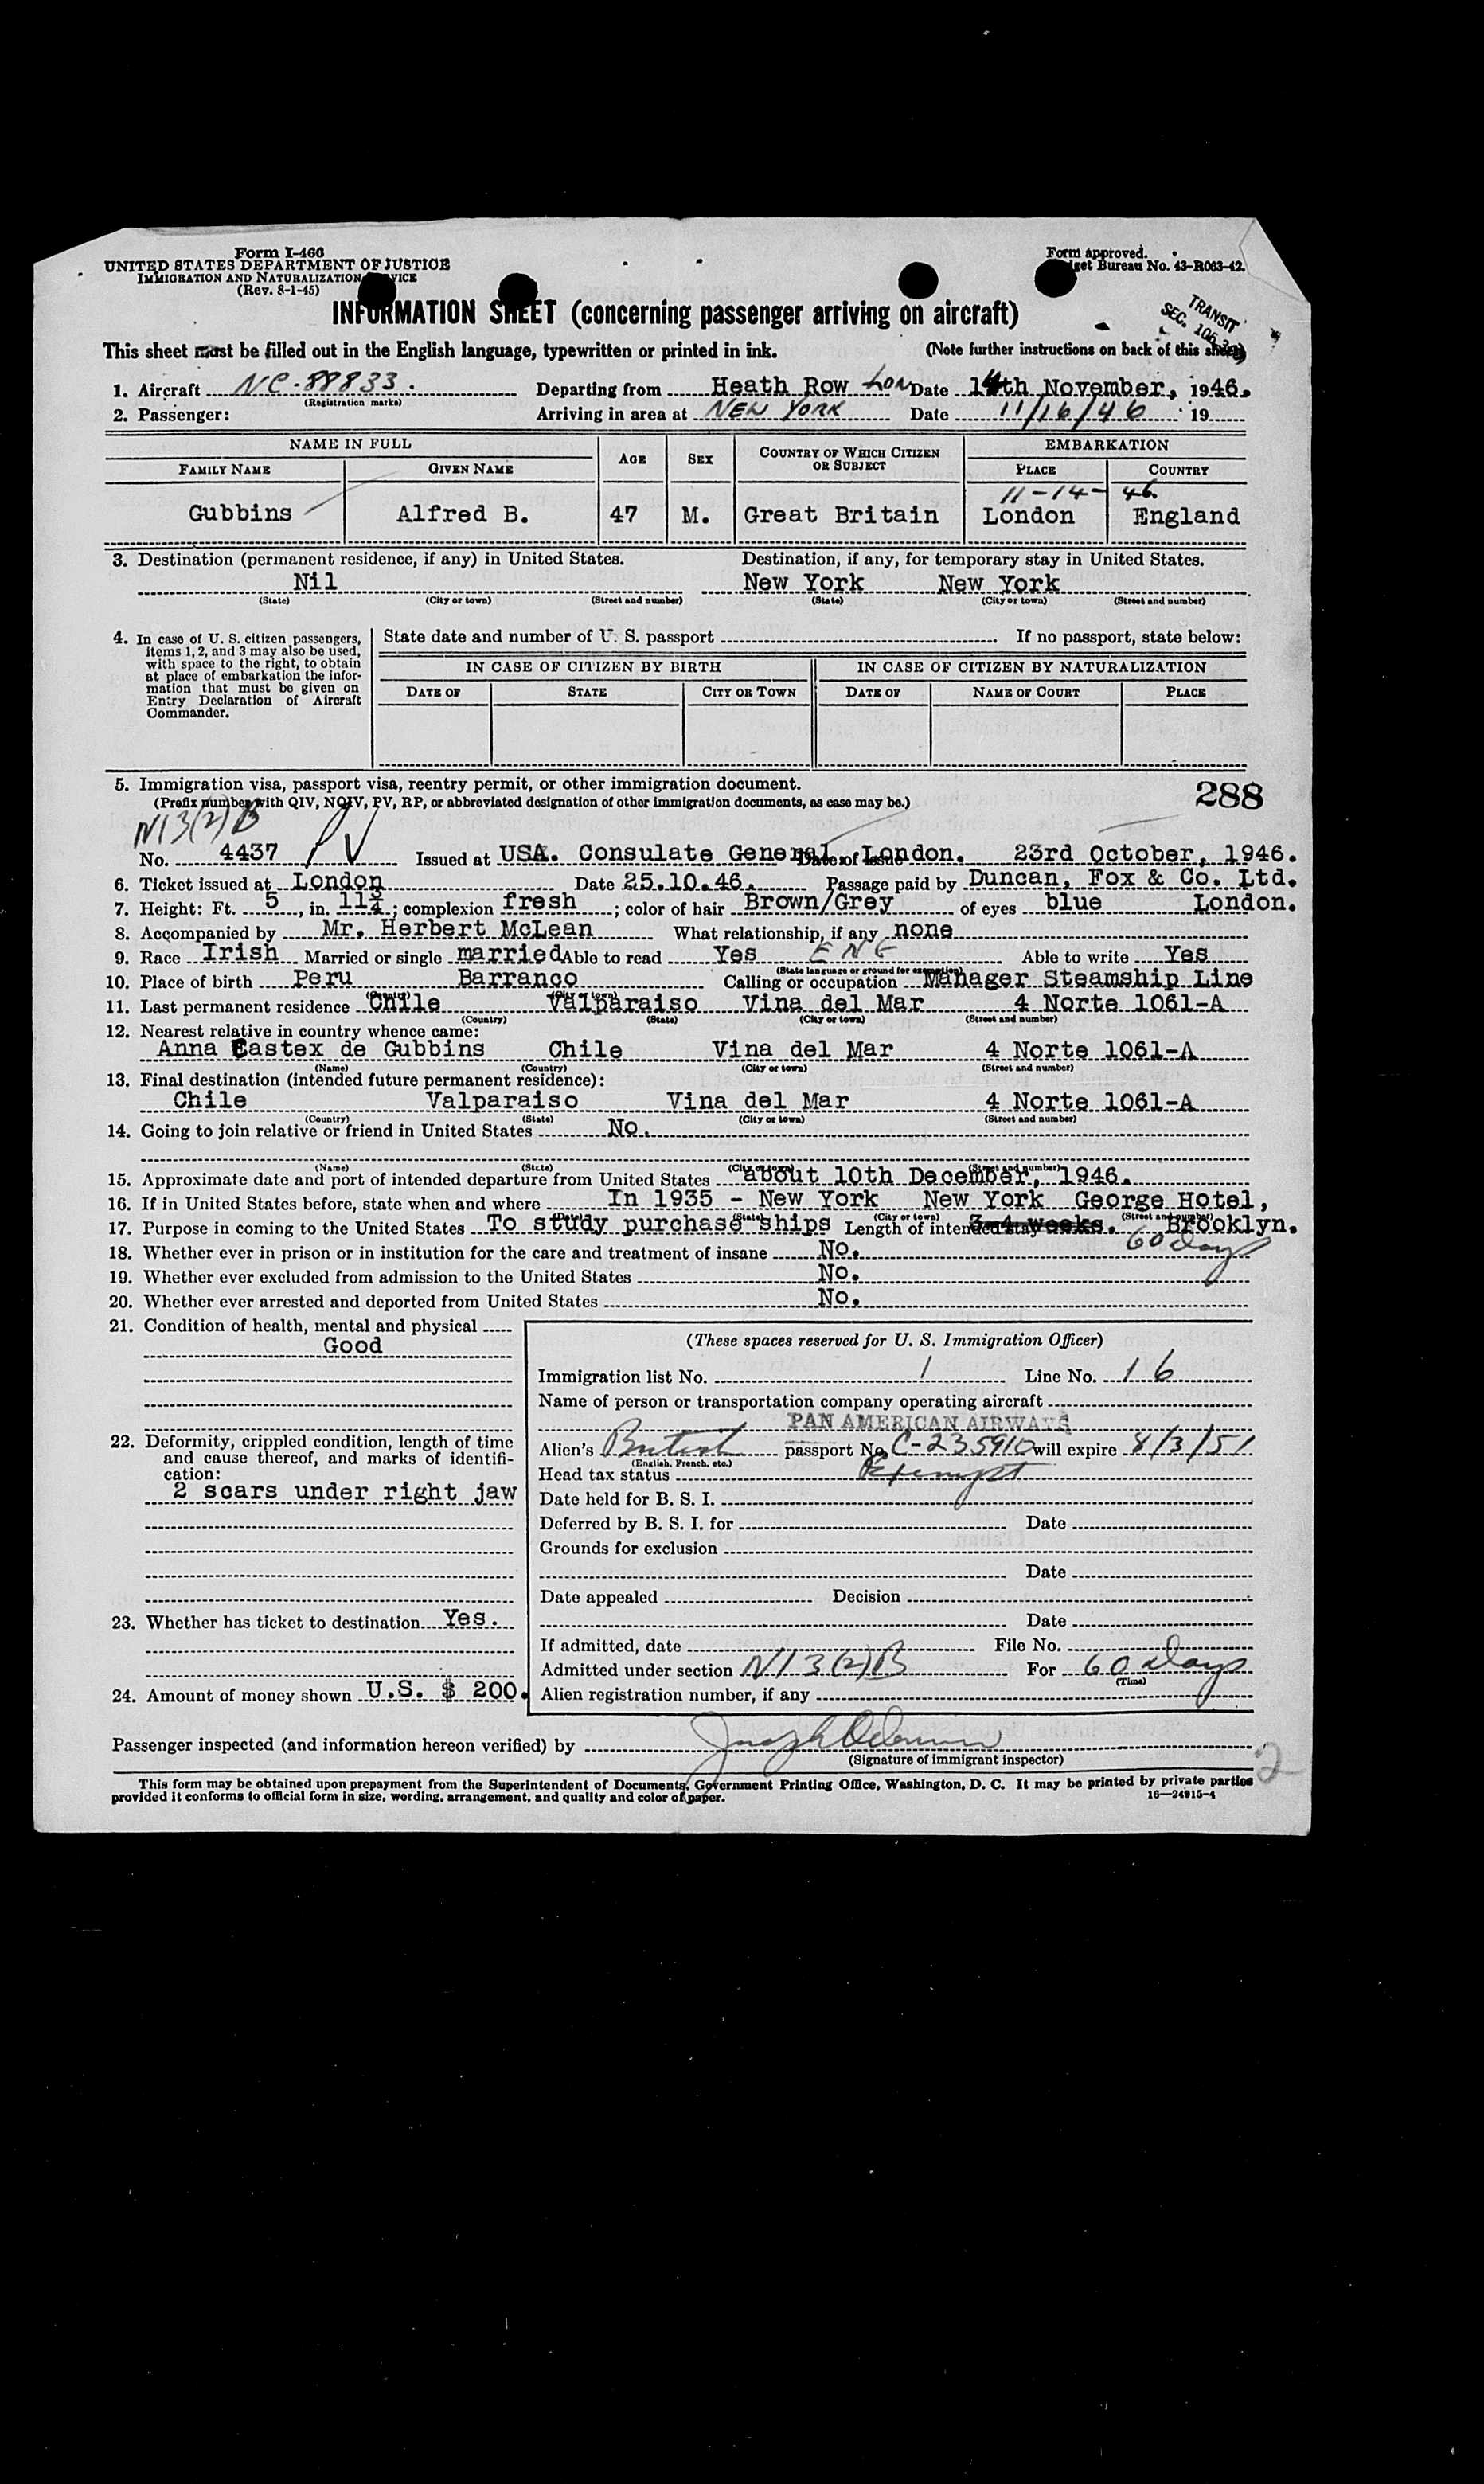 Form I-466
UNITED STATES DEPARTMENT OF JUSTICE
IMMIGRATION AND NATURALIZATION VICE
(Rev. 8-1-45)
Form approved.
get Bureau No. 43-R063-42.
INFORMATION SHEET (concerning passenger arriving on aircraft)
TRANSIT
SEC. 106.3
This sheet must be filled out in the English language, typewritten or printed in ink. (Note further instructions on back of this sheet)
1. Aircraft NC-88833. Departing from Heath Row LON Date 14th November, 1946.
(Registration marks)
2. Passenger: Arriving in area at NEW YORK Date 11/16/46 19
NAME IN FULL AGE SEX COUNTRY OF WHICH CITIZEN OR SUBJECT EMBARKATION
FAMILY NAME GIVEN NAME PLACE COUNTRY
11-14-46.
Gubbins Alfred B. 47 M. Great Britain London England
3. Destination (permanent residence, if any) in United States. Destination, if any, for temporary stay in United States.
Nil New York New York
(State) (City or town) (Street and number) (State) (City or town) (Street and number)
4. In case of U. S. citizen passengers, items 1, 2, and 3 may also be used, with space to the right, to obtain at place of embarkation the information that must be given on Entry Declaration of Aircraft Commander.
State date and number of U. S. passport If no passport, state below:
IN CASE OF CITIZEN BY BIRTH IN CASE OF CITIZEN BY NATURALIZATION
DATE OF STATE CITY OR TOWN DATE OF NAME OF COURT PLACE
5. Immigration visa, passport visa, reentry permit, or other immigration document. 288
(Prefix number with QIV, NQIV, PV, RP, or abbreviated designation of other immigration documents, as case may be.)
N13(2)B
No. 4437 PV Issued at USA. Consulate General London. Date of issue 23rd October, 1946.
6. Ticket issued at London Date 25.10.46. Passage paid by Duncan, Fox & Co. Ltd.
7. Height: Ft. 5, in. 11¾; complexion fresh; color of hair Brown/Grey of eyes blue London.
8. Accompanied by Mr. Herbert McLean What relationship, if any none
9. Race Irish Married or single married Able to read Yes ENG Able to write Yes
(State language or ground for exemption)
10. Place of birth Peru Barranco Calling or occupation Manager Steamship Line
(Country) (City or town)
11. Last permanent residence Chile Valparaiso Vina del Mar 4 Norte 1061-A
(Country) (State) (City or town) (Street and number)
12. Nearest relative in country whence came:
Anna Eastex de Gubbins Chile Vina del Mar 4 Norte 1061-A
(Name) (Country) (City or town) (Street and number)
13. Final destination (intended future permanent residence):
Chile Valparaiso Vina del Mar 4 Norte 1061-A
(Country) (State) (City or town) (Street and number)
14. Going to join relative or friend in United States No.
(Name) (State) (City or town) (Street and number)
15. Approximate date and port of intended departure from United States about 10th December, 1946.
16. If in United States before, state when and where In 1935 - New York New York George Hotel,
(Date) (State) (City or town) (Street and number)
17. Purpose in coming to the United States To study purchase ships Length of intended stay 3-4 weeks. Brooklyn.
60 days
18. Whether ever in prison or in institution for the care and treatment of insane No.
19. Whether ever excluded from admission to the United States No.
20. Whether ever arrested and deported from United States No.
21. Condition of health, mental and physical
Good
22. Deformity, crippled condition, length of time and cause thereof, and marks of identification:
2 scars under right jaw
23. Whether has ticket to destination Yes.
24. Amount of money shown U.S. $ 200.
(These spaces reserved for U. S. Immigration Officer)
Immigration list No. 1 Line No. 16
Name of person or transportation company operating aircraft
PAN AMERICAN AIRWAYS
Alien's British passport No. C-235910 will expire 8/3/51
(English, French, etc.)
Head tax status Exempt
Date held for B. S. I.
Deferred by B. S. I. for Date
Grounds for exclusion
Date
Date appealed Decision
Date
If admitted, date File No.
Admitted under section N13(2)B For 60 Days
(Time)
Alien registration number, if any
Passenger inspected (and information hereon verified) by
(Signature of immigrant inspector)
2
This form may be obtained upon prepayment from the Superintendent of Documents, Government Printing Office, Washington, D. C. It may be printed by private parties
provided it conforms to official form in size, wording, arrangement, and quality and color of paper. 16—24915-4